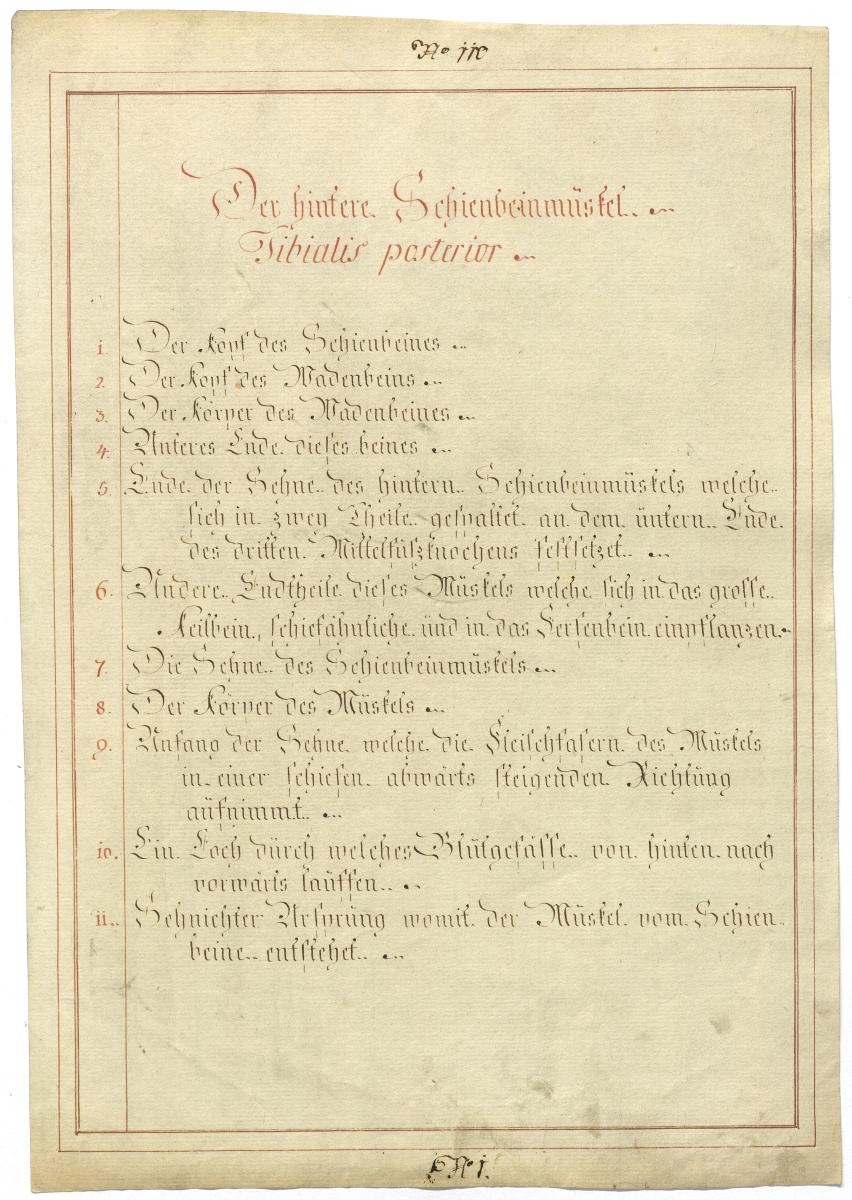 No 110
Der hintere Schienbeinmüskel.
Tibialis posterior
1. Der Kopf des Schienbeines
2. Der Kopf des Wadenbeins
3. Der Körper des Wadenbeines
4. Unteres Ende dieses beines
5. Ende der Sehne des hintern Schienbeinmüskels welche
sich in zwey Theile gespaltet an dem üntern Ende
des dritten Mittelfüszknochens festsetzet.
6. Andere Endtheile dieses Müskels welche sich in das grosse
Keilbein, schiefähnliche ünd in das Fersenbein einpflanzen.
7. Die Sehne des Schienbeinmüskels
8. Der Körper des Müskels
9. Anfang der Sehne welche die Fleischfasern des Müskels
in einer schiefen abwärts steigenden Richtüng
aüfnimmt.
10. Ein Loch dürch welches Blütgefässe von hinten nach
vorwärts lauffen.
11. Sehnichter Ursprüng womit der Müskel vom Schien
beine entstehet.
No 1.